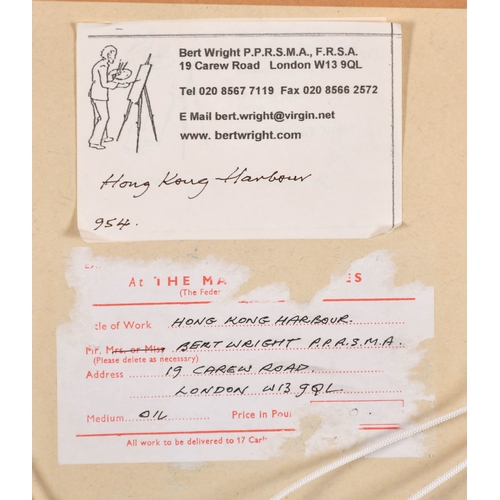 Bert Wright P.P.R.S.M.A., F.R.S.A.
19 Carew Road London W13 9QL
Tel 020 8567 7119 Fax 020 8566 2572
E Mail bert.wright@virgin.net
www. bertwright.com
Hong Kong Harbour
954.
At THE MA ES
(The Feder
tle of Work HONG KONG HARBOUR.
Mr. Mrs. or Miss BERT WRIGHT P.P.R.S.M.A.
(Please delete as necessary)
Address 19 CAREW ROAD.
LONDON W13 9QL
Medium OIL Price in Poun 0.
All work to be delivered to 17 Carl